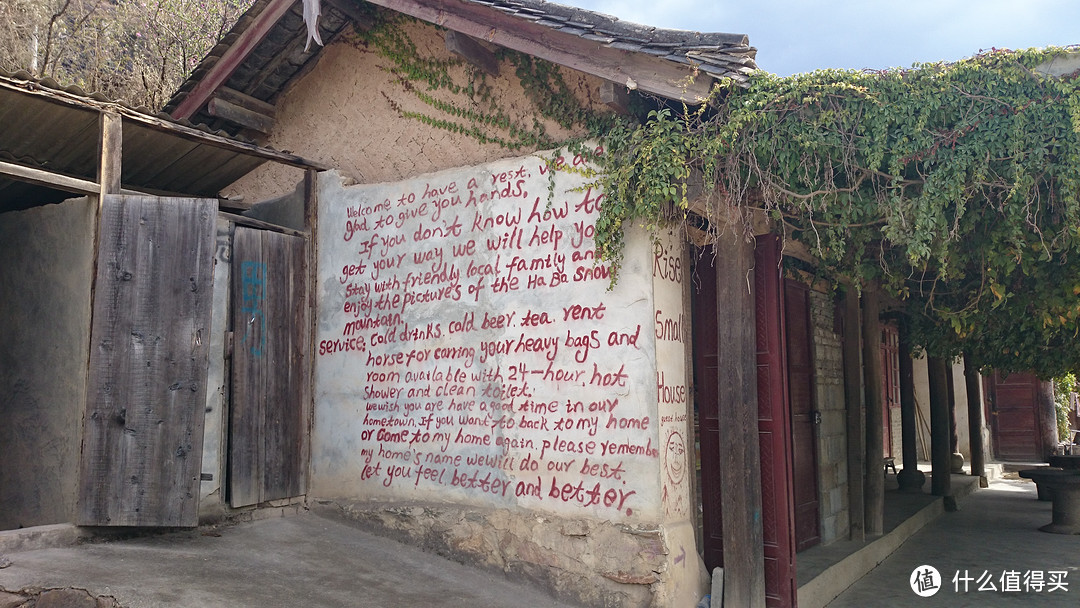 Welcome to have a rest. we are
glad to give you hands.
If you don't know how to
get your way we will help you
Stay with friendly local family and
enjoy the pictures of the Ha Ba Snow
mountain.
service, cold drinks. cold beer. tea. rent
horse for carring your heavy bags and
room available with 24-hour. hot
shower and clean toilet.
we wish you are have a good time in our
hometown. If you want to back to my home
or come to my home again. please remember
my home's name we will do our best.
let you feel better and better.
Rise
Small
House
guest house
值 什么值得买